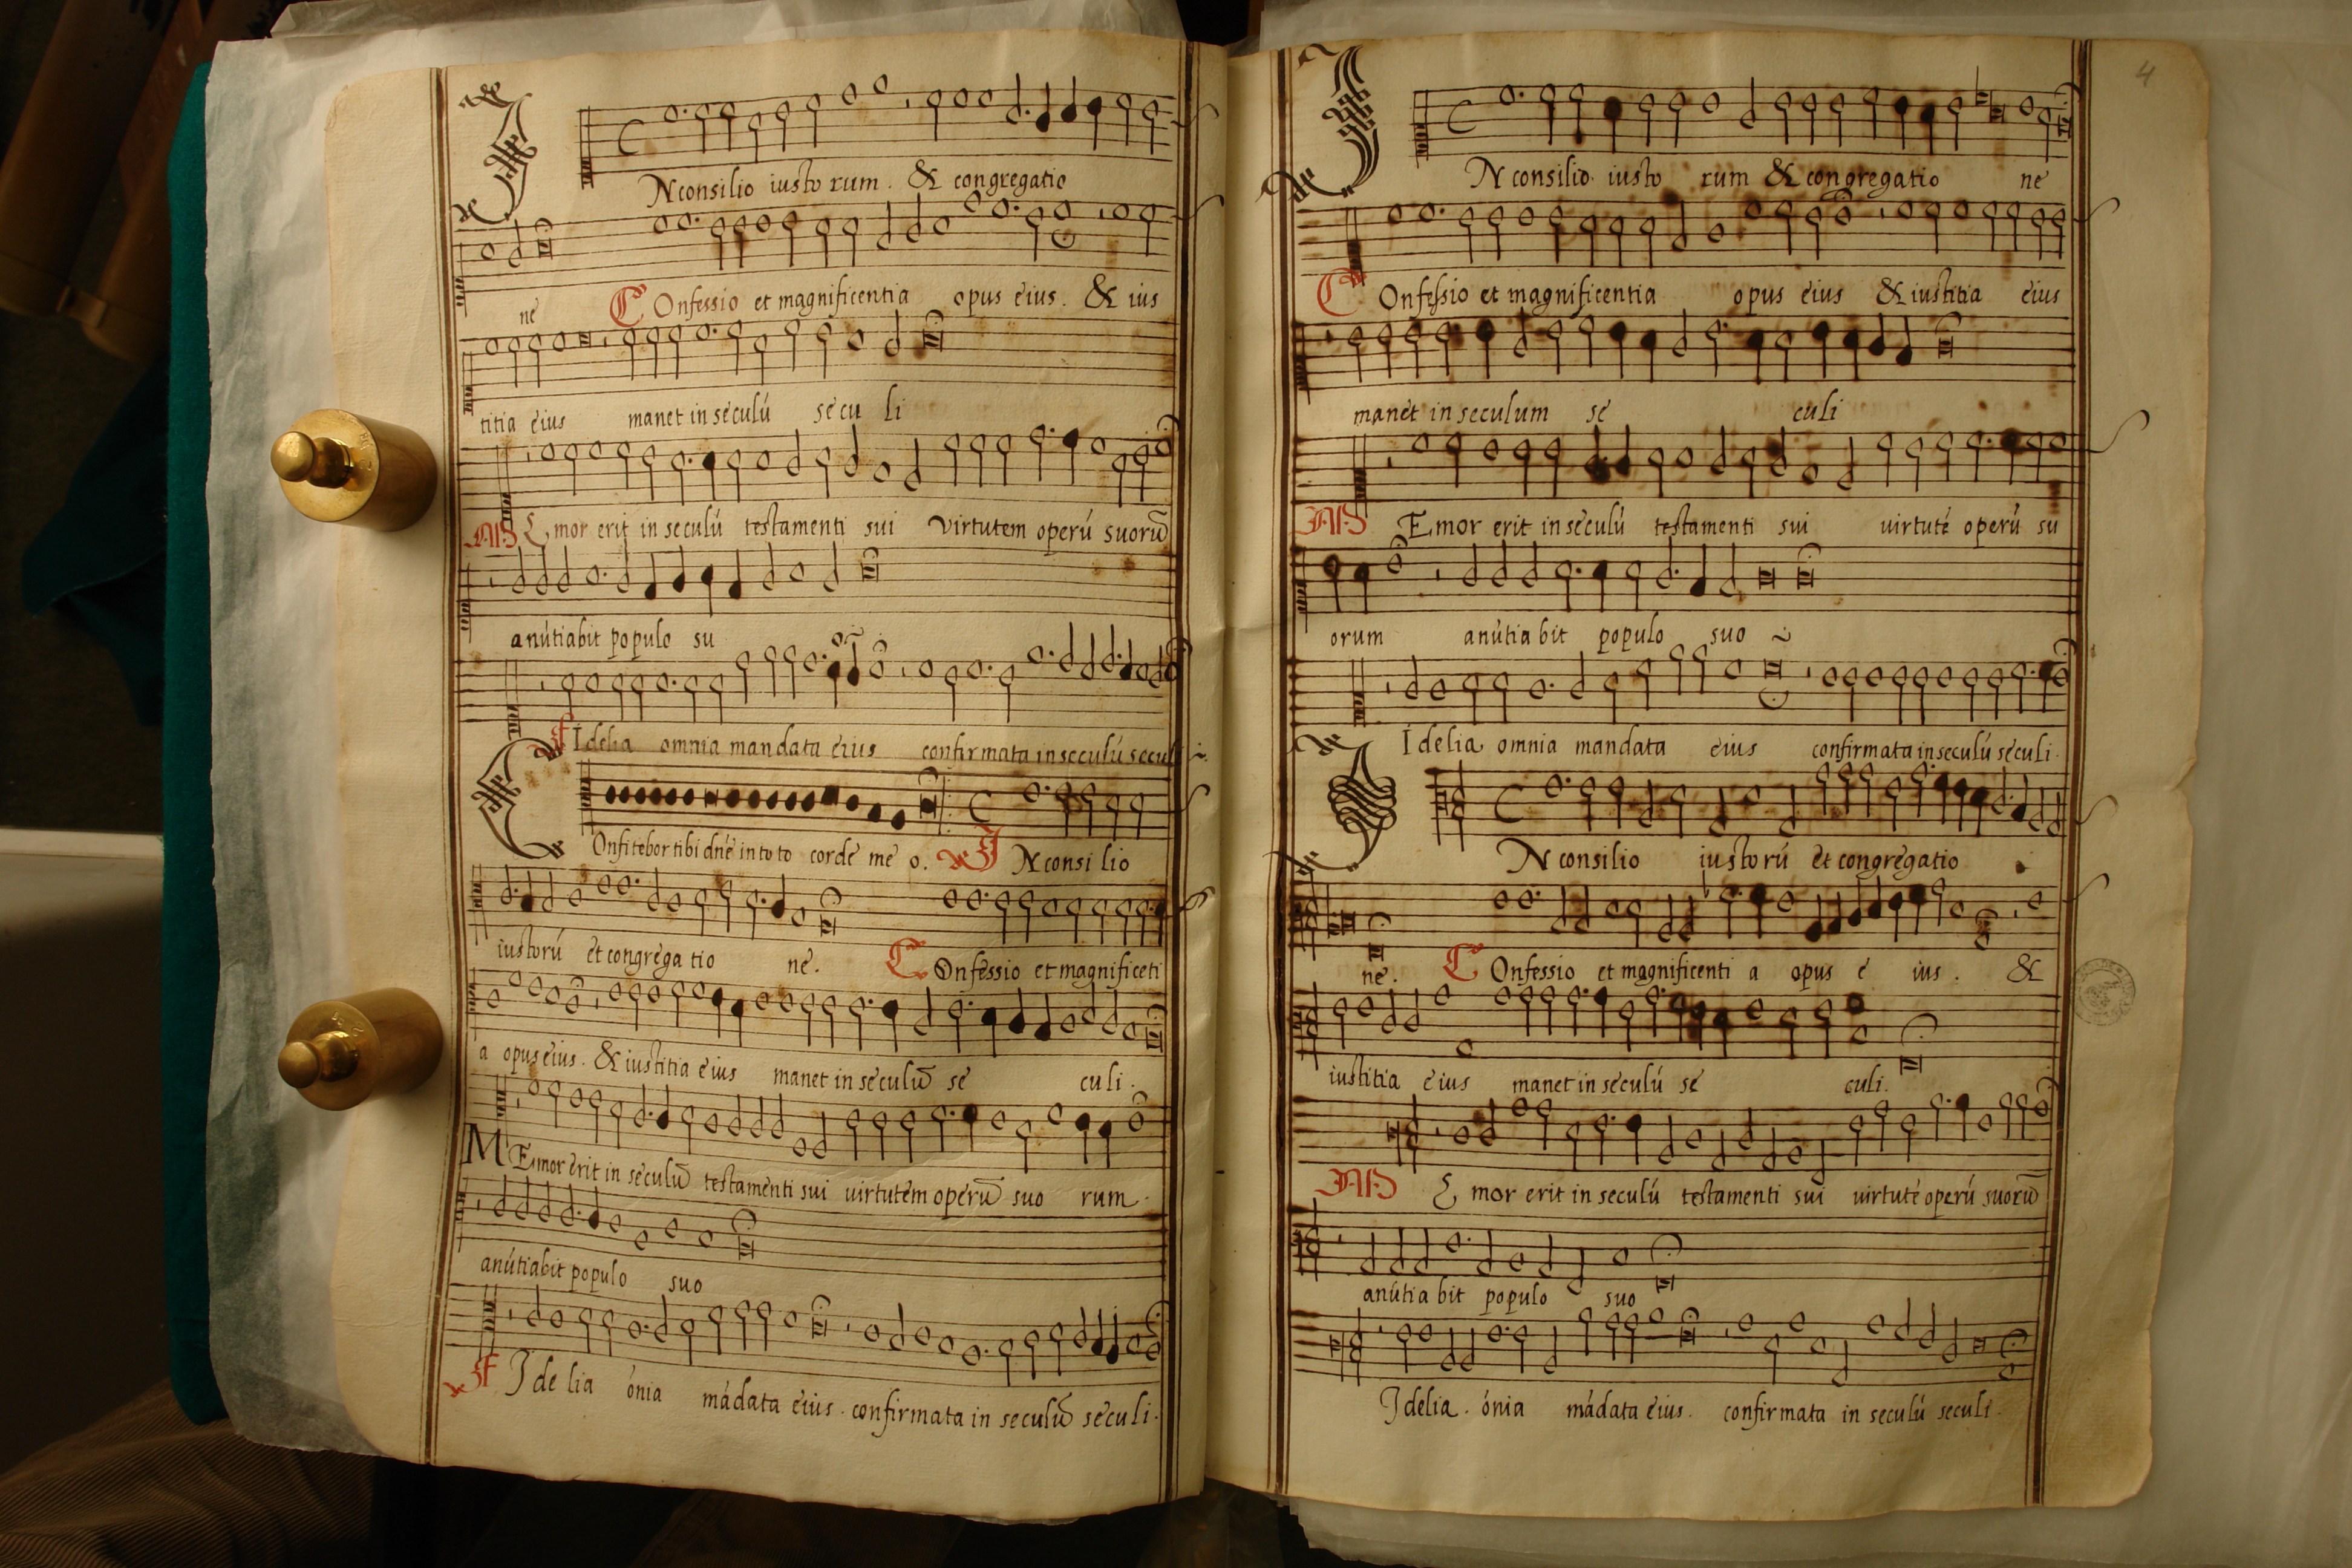 IN consilio iusto rum. & congregatio
ne COnfessio et magnificentia opus eius. & ius
titia eius manet in seculú secu li
MEmor erit in seculú testamenti sui virtutem operú suorū
anútiabit populo su
FIdelia omnia mandata eius confirmata in seculú seculi
COnfitebor tibi dn̄e in toto corde me o. IN consi lio
iustorú et congrega tio ne. COnfessio et magnificéti
a opus eius. & iustitia eius manet in seculū se culi.
MEmor erit in seculū testamenti sui uirtutem operū suo rum.
anútiabit populo suo
FIde lia ónia mádata eius. confirmata in seculū seculi.
4
IN consilio iusto rum & congregatio ne
COnfessio et magnificentia opus eius & iustitia eius
manet in seculum se culi
MEmor erit in seculú testamenti sui uirtuté operú su
orum anútia bit populo suo
Idelia omnia mandata eius confirmata in seculú seculi.
IN consilio iustorú et congregatio
ne. COnfessio et magnificenti a opus e ius. &
iustitia eius manet in seculú se culi.
MEmor erit in seculú testamenti sui uirtuté operú suorū
anútia bit populo suo
Idelia. ónia mádata eius. confirmata in seculú seculi.